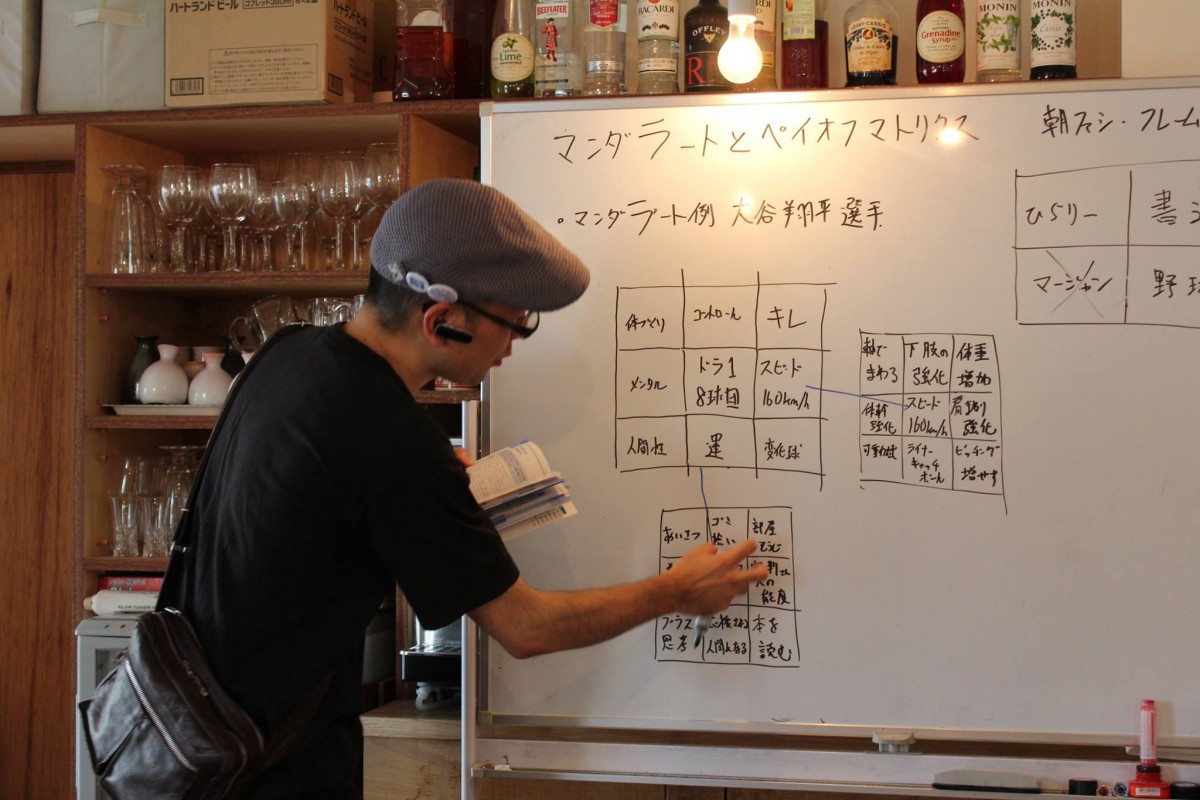 ハートランドビール
Lime
BEEFEATER
BACARDI
OFFLEY
R
CASSIS
Grenadine
SYRUP
MONIN
MONIN
マンダラートとペイオフマトリクス
朝ファシ・フレーム
・マンダラート例 大谷翔平選手
体づくり
コントロール
キレ
メンタル
ドラ1
8球団
スピード
160km/h
人間性
運
変化球
軸で
まわる
下肢の
強化
体重
増加
体幹
強化
スピード
160km/h
肩周り
強化
可動域
ライナー
キャッチ
ボール
ピッチング
増やす
あいさつ
ゴミ
拾い
部屋
そうじ
審判さん
への
態度
プラス
思考
応援される
人間になる
本を
読む
ひらりー
書
マージャン
野球